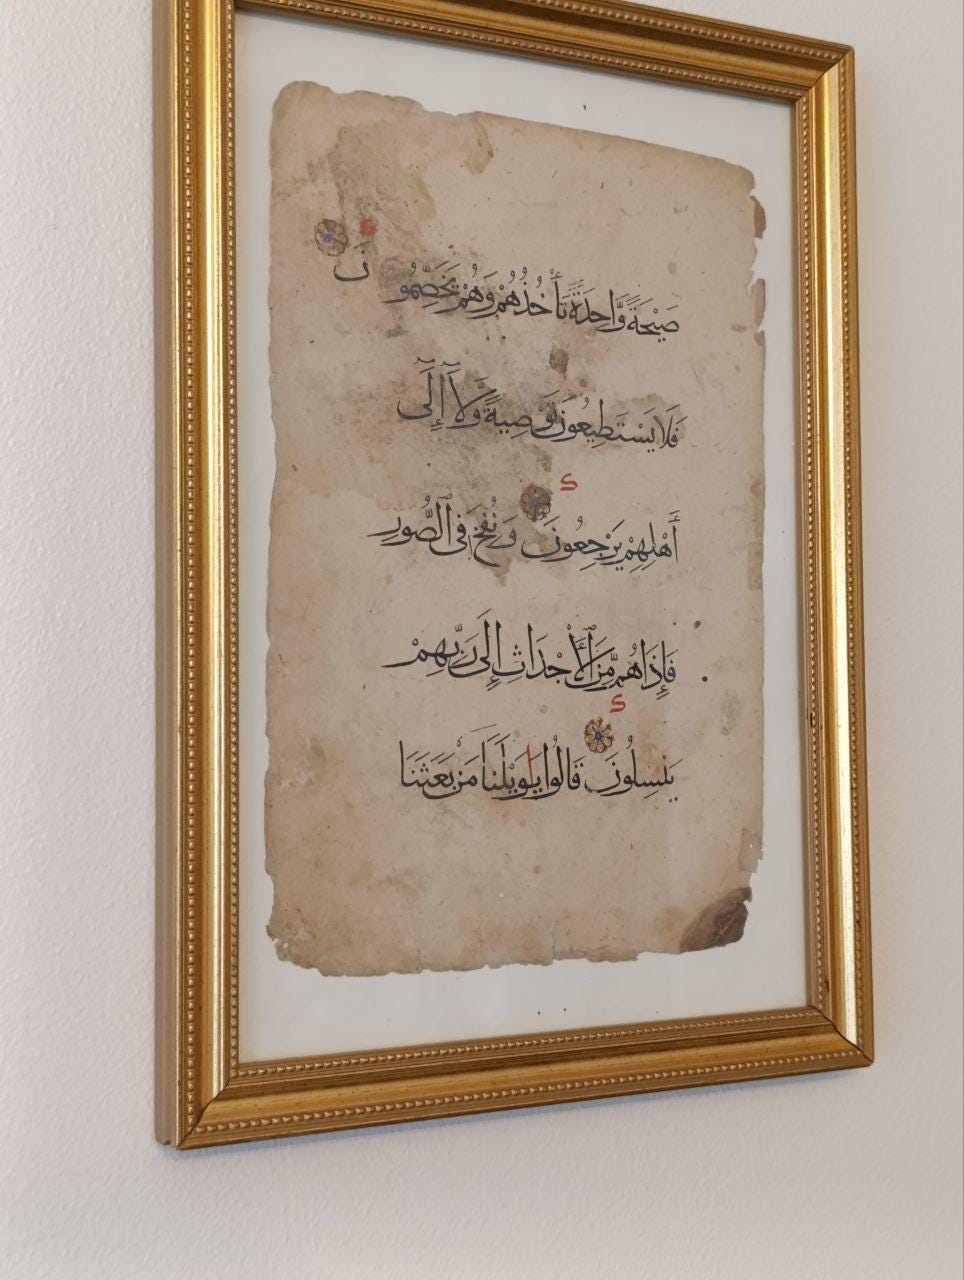 صَيْحَةً وَّاحِدَةً تَأْخُذُهُمْ وَهُمْ يَخِصِّمُونَ
فَلَا يَسْتَطِيعُونَ تَوْصِيَةً وَّلَآ إِلَىٰٓ
أَهْلِهِمْ يَرْجِعُونَ وَنُفِخَ فِى ٱلصُّورِ
فَإِذَا هُم مِّنَ ٱلْأَجْدَاثِ إِلَىٰ رَبِّهِمْ
يَنسِلُونَ قَالُوا يَاوَيْلَنَا مَنۢ بَعَثَنَا